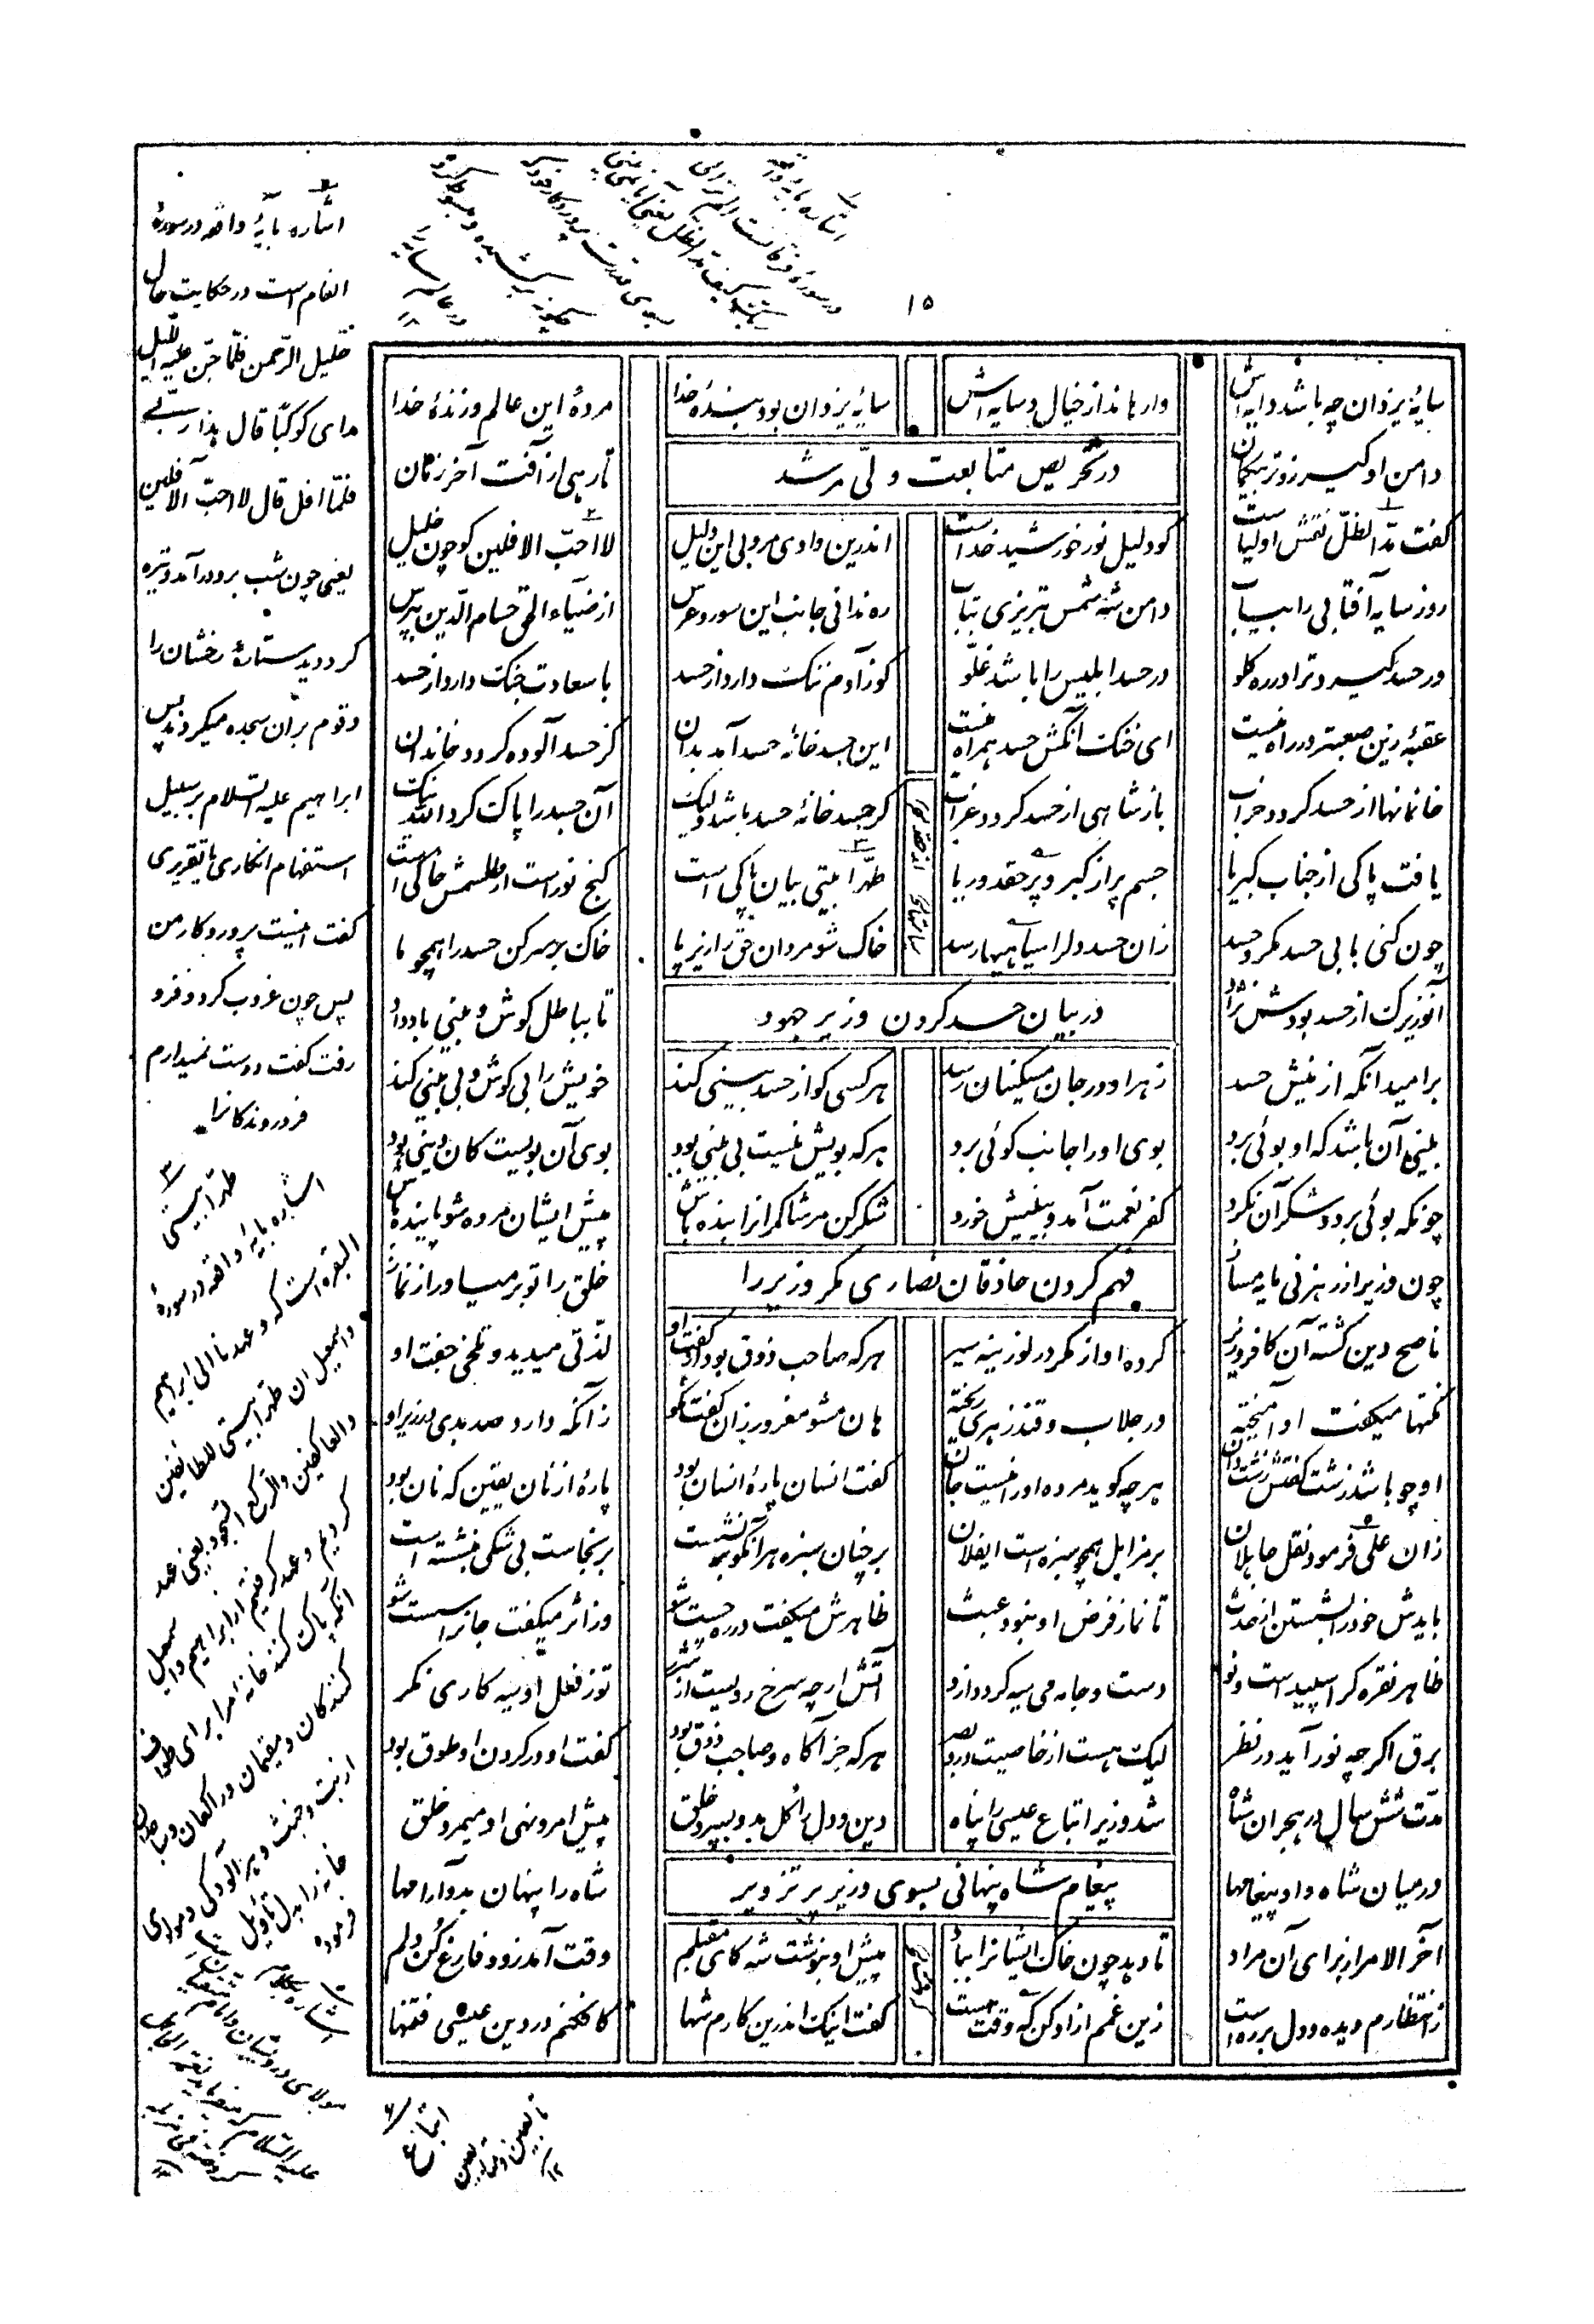 ۱۵
سایهٔ یزدان چه باشد دایه‌اش
وارهاند از خیال و سایه‌اش
سایهٔ یزدان بود بندهٔ خدا
مردهٔ این عالم و زندهٔ خدا
دامن او گیر زوتر بیگمان
تا رهی از آفت آخر زمان
در تحریص متابعت ولی مرشد
کیف مدّ الظلّ نقش اولیاست
کو دلیل نور خورشید خداست
اندرین وادی مرو بی این دلیل
لا احبّ الآفلین گو چون خلیل
رو ز سایه آفتابی را بیاب
دامن شه شمس تبریزی بتاب
ره ندانی جانب این سور و عرس
از ضیاء الحق حسام الدین بپرس
ور حسد گیرد ترا در ره گلو
در حسد ابلیس را باشد غلو
کو ز آدم ننگ دارد از حسد
با سعادت جنگ دارد از حسد
عقبهٔ زین صعبتر در راه نیست
ای خنک آنکش حسد همراه نیست
این جسد خانهٔ حسد آمد بدان
کز حسد آلوده گردد خاندان
خانمانها از حسد گردد خراب
باز شاهی از حسد گردد غراب
گر جسد خانهٔ حسد باشد ولیک
آن جسد را پاک کرد الله نیک
یافت پاکی از جناب کبریا
جسم پر از کبر و پر حقد و ریا
طهّرا بیتی بیان پاکی است
گنج نور است ار طلسمش خاکی است
چون کنی با بی حسد مکر و حسد
زان حسد دل را سیاهیها رسد
خاک شو مردان حق را زیر پا
خاک بر سر کن حسد را همچو ما
در بیان حسد کردن وزیر جهود
آنوزیرک از حسد بودش نژاد
تا بباطل گوش و بینی باد داد
بر امید آنکه از نیش حسد
زهر او در جان مسکینان رسد
هر کسی کو از حسد بینی کند
خویش را بی گوش و بی بینی کند
بینی آن باشد که او بوئی برد
بوی او را جانب کوئی برد
هر که بویش نیست بی بینی بود
بوی آن بویست کان دینی بود
چونکه بوئی برد و شکر آن نکرد
کفر نعمت آمد و بینیش خورد
شکر کن مر شاکرانرا بنده باش
پیش ایشان مرده شو پاینده باش
چون وزیر از رهزنی مایه مساز
خلق را تو بر میاور از نماز
فهم کردن حاذقان نصاری مکر وزیر را
ناصح دین گشته آن کافر وزیر
کرده او از مکر در لوزینه سیر
هر که صاحب ذوق بود از گفت او
لذّتی میدید و تلخی جفت او
نکتها میگفت او آمیخته
در جلاب و قند زهری ریخته
هان مشو مغرور زان گفت نکو
زانکه دارد صد بدی در زیر او
او چو باشد زشت گفتش زشت دان
هر چه گوید مرده او را نیست جان
گفت انسان پارهٔ انسان بود
پارهٔ از نان یقین که نان بود
زان علی فرمود نقل جاهلان
بر مزابل همچو سبزه است ایفلان
بر چنان سبزه هر آنکو بر نشست
بر نجاست بی شکی بنشسته است
بایدش خود را بشستن از حدث
تا نماز فرض او نبود عبث
ظاهرش میگفت در ره چست شو
وز اثر میگفت جانرا سست شو
ظاهر نقره گر اسپید است و نو
دست و جامه می سیه گردد ازو
آتش ار چه سرخ رویست از شرر
تو ز فعل او سیه کاری نگر
برق اگر چه نور آید در نظر
لیک هست از خاصیت دزد بصر
هر که جز آگاه و صاحب ذوق بود
گفت او در گردن او طوق بود
مدّت شش سال در هجران شاه
شد وزیر اتباع عیسی را پناه
دین و دل را کل بدو بسپرد خلق
پیش امر و نهی او میمرد خلق
در میان شاه و او پیغامها
شاه را پنهان بدو آرامها
پیغام شاه پنهانی بسوی وزیر پر تزویر
آخر الامر از برای آن مراد
تا دهد چون خاک ایشانرا بباد
پیش او بنوشت شه کای مقبلم
وقت آمد زود فارغ کن دلم
ز انتظارم دیده و دل بر ره است
زین غمم آزاد کن گر وقت هست
گفت اینک اندرین کارم شها
کافکنم در دین عیسی فتنها
۲
اشاره بآیهٔ واقعه در سورهٔ
انعام است در حکایت حال
خلیل الرّحمن فلمّا جنّ علیه اللّیل
رای کوکباً قال هذا ربّی
فلمّا افل قال لا احبّ الآفلین
یعنی چون شب برو در آمد و تیره
کرد دید ستارهٔ رخشان را
و قوم بر آن سجده میکردند پس
ابراهیم علیه السلام بر سبیل
استفهام انکاری یا تقریری
گفت اینست پروردگار من
پس چون غروب کرد و فرو
رفت گفت دوست نمیدارم
فروروندگانرا
۳
طهرا بیتی
اشاره بآیهٔ واقعه در سورهٔ
البقره است که و عهدنا الی ابراهیم
و اسمعیل ان طهرا بیتی للطائفین
و العاکفین و الرکع السجود یعنی عهد
کردیم و عهد گرفتیم از ابراهیم و اسمعیل
آنکه پاک کنند خانه مرا برای طواف
کنندگان و مقیمان و راکعان و ساجدان